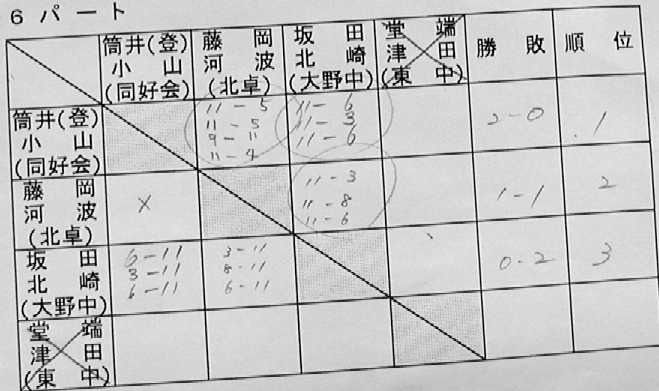 6 パート
筒井(登) 藤 岡 坂 田 堂 端 勝 敗 順 位
小 山 河 波 北 崎 津 田
(同好会) (北卓) (大野中) (東 中)
筒井(登) 11 - 5 11 - 6 2-0 1
小 山 11 - 5 11 - 3
(同好会) 9 - 11 11 - 6
11 - 4
藤 岡 × 11 - 3 1-1 2
河 波 11 - 8
(北卓) 11 - 6
坂 田 6-11 3-11 0-2 3
北 崎 3-11 8-11
(大野中) 6-11 6-11
堂 端
津 田
(東 中)